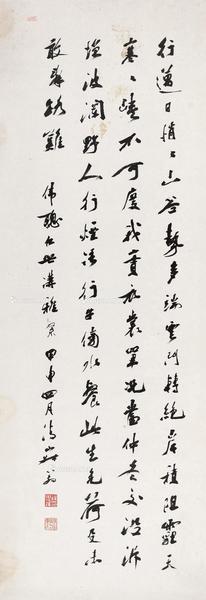 行邁日悄〻山谷勢多端雲門轉絕岸積阻霾天
寒〻峽不可度我實衣裳單況當仲冬交沿泝
增波瀾野人尋煙語行子傍水餐此生免荷殳未
敢辭路難 仁世講雅 甲申四月 翁